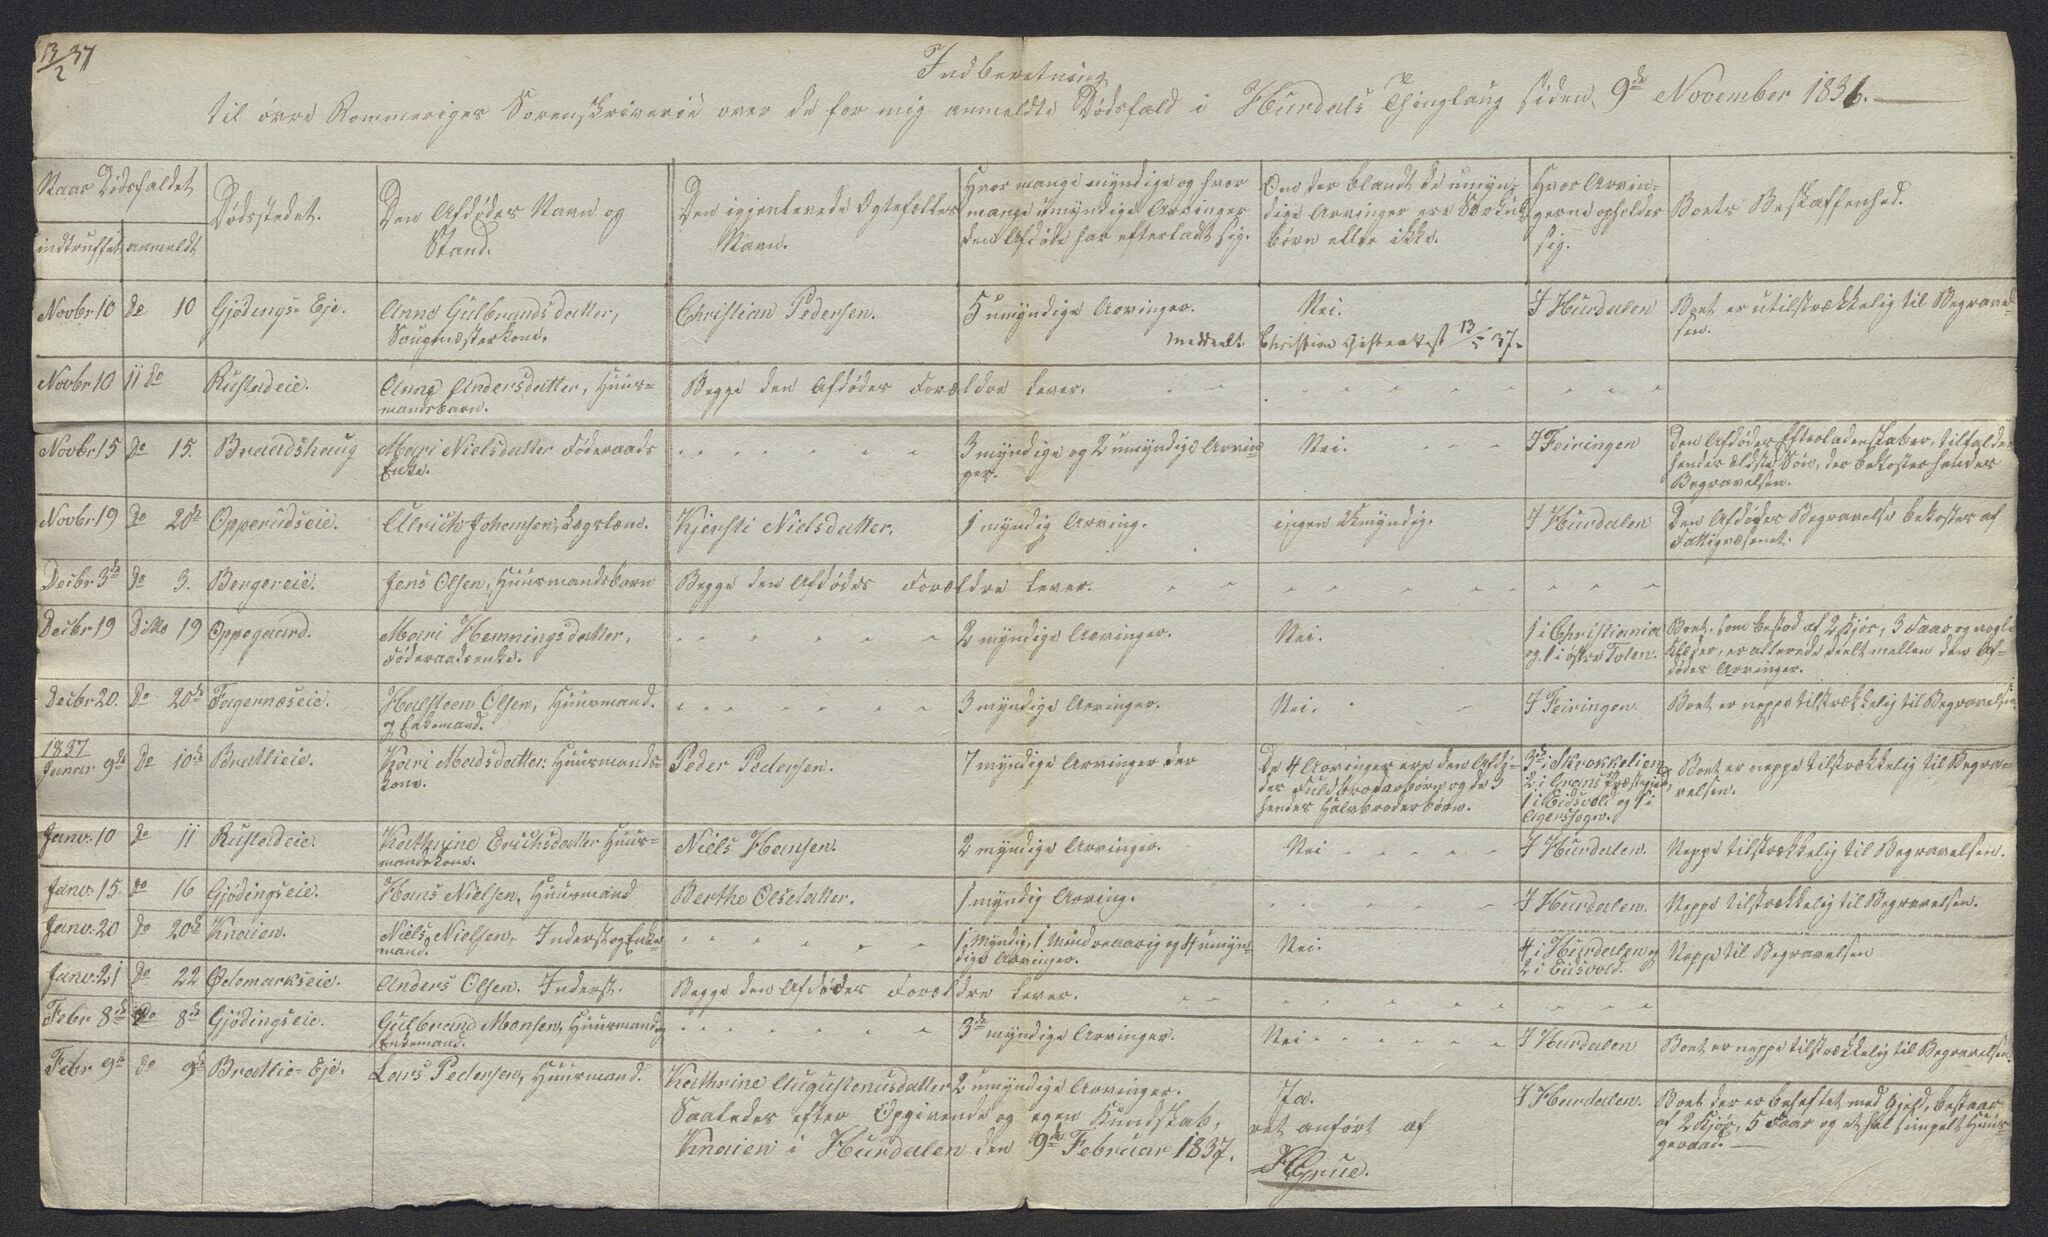 13/2 37
Indberetning
til øvre Rommeriges Sorenskriverie over de for mig anmeldte Dødsfald i Hurdals Thinglaug siden 9de November 1836.
Naar Dødsfaldet
indtruffet anmeldt
Dødsstedet.
Den Afdødes Navn og
Stand.
Den igjenlevende Egtefelles
Navn.
Hvor mange myndige og hvor
mange umyndige Arvinger
den Afdøde har efterladt sig.
Om der blandt de umyn-
dige Arvinger ere
børn eller ikke.
Hvor Arvin-
gerne opholder
sig.
Boets Beskaffenhed.
Novbr 10 Do 10 Gjødings Eje. Anne Gulbrandsdatter, Christian Pedersen. 5 umyndige Arvinger. Nei. I Hurdalen Boet er utilstrækkelig til Begravel-
kone. meddeelt Christian 13/2 37. sen.
Novbr 10 11 Do Rustadeie. Anne Andersdatter, Huus- Begge den Afdødes Forældre lever.
mandsbarn.
Novbr 15 Do 15. Braadshaug Mari Nielsdatter Føderaads 3 myndige og 2 umyndige Arvin- Nei. I Feiringen Den Afdødes Efterladenskaber, tilfalder
Enke. ger. hendes ældste Søn, der bekoster hendes
Begravelsen.
Novbr 19 Do 20de Opperudseie. Ulrich Johansen, Lægslem. Kjersti Nielsdatter. 1 myndig Arving. ingen Umyndig. I Hurdalen Den Afdødes Begravelse bekostes af
Fattigvæsenet.
Decbr 3de Do 3. Bergereie. Jens Olsen, Huusmandsbarn Begge den Afdødes Forældre lever.
Decbr 19 Ditto 19 Oppegaard. Mari Hemmingsdatter, 2 myndige Arvinger. Nei. 1 i Christiania Boet, som bestod af 2 Kjør, 3 Faar og nogle
Føderaadsenke. og 1 i østre Toten. Klæder, er allerede deelt mellem den Af-
dødes Arvinger.
Decbr 20. Do 20de Fagernæseie. Halsteen Olsen, Huusmand. 3 myndige Arvinger. Nei. I Feiringen. Boet er neppe tilstrækkelig til Begravelsen.
og Enkemand.
1837
Januar 9de Do 10de Bratlieie. Kari Madsdatter. Huusmands- Peder Pedersen. 7 myndige Arvinger der De 4 Arvinger ere den Afdø- 3de i Skrukkelien Boet er neppe tilstrækkelig til Begra-
kone. des Fuldbroderbørn og de 3 2 i Grans Præstegjeld, velsen.
hendes Halvbroderbørn. 1 i Eidsvold og 1 i
Agerssogn.
Janv: 10 Do 11 Rustadeie. Kathrine Erichsdatter Huus- Niels Hansen. 2 myndige Arvinger. Nei I Hurdalen. Neppe tilstrækkelig til Begravelsen.
mandskone.
Janv: 15 Do 16 Gjødingseie. Hans Nielsen, Huusmand Berthe Olsdatter. 1 myndig Arving. I Hurdalen. Neppe tilstrækkelig til Begravelsen.
Janv: 20 Do 20de Knaien. Niels Nielsen, Inderst og Enke- 1 Myndig, 1 Mindreaarig og umyn- Nei. 4 i Hurdalen og Neppe til Begravelsen
mand. dige Arvinger. 2 i Eidsvold.
Janv: 21 Do 22 Ødemarkseie. Anders Olsen. Inderst. Begge den Afdødes Forældre lever.
Febr 8de Do 8de Gjødingseie. Gulbrand Monsen, Huusmand og 3de myndige Arvinger. Nei I Hurdalen Boet er neppe tilstrækkelig til Begravelsen.
Enkemand.
Febr 9de Do 9de Bratlie-Eje. Lars Pedersen, Huusmand. Kathrine Augustinusdatter 2 umyndige Arvinger. Ja. I Hurdalen. Boet der er beheftet med Gjeld, bestaar
af 2 Kjør, 5 Faar og et Del simpelt Huus-
geraad.
Saaledes efter Opgivende og egen Kundskab, ret anført af
Knaien i Hurdalen den 9de Februar 1837. HGrue.